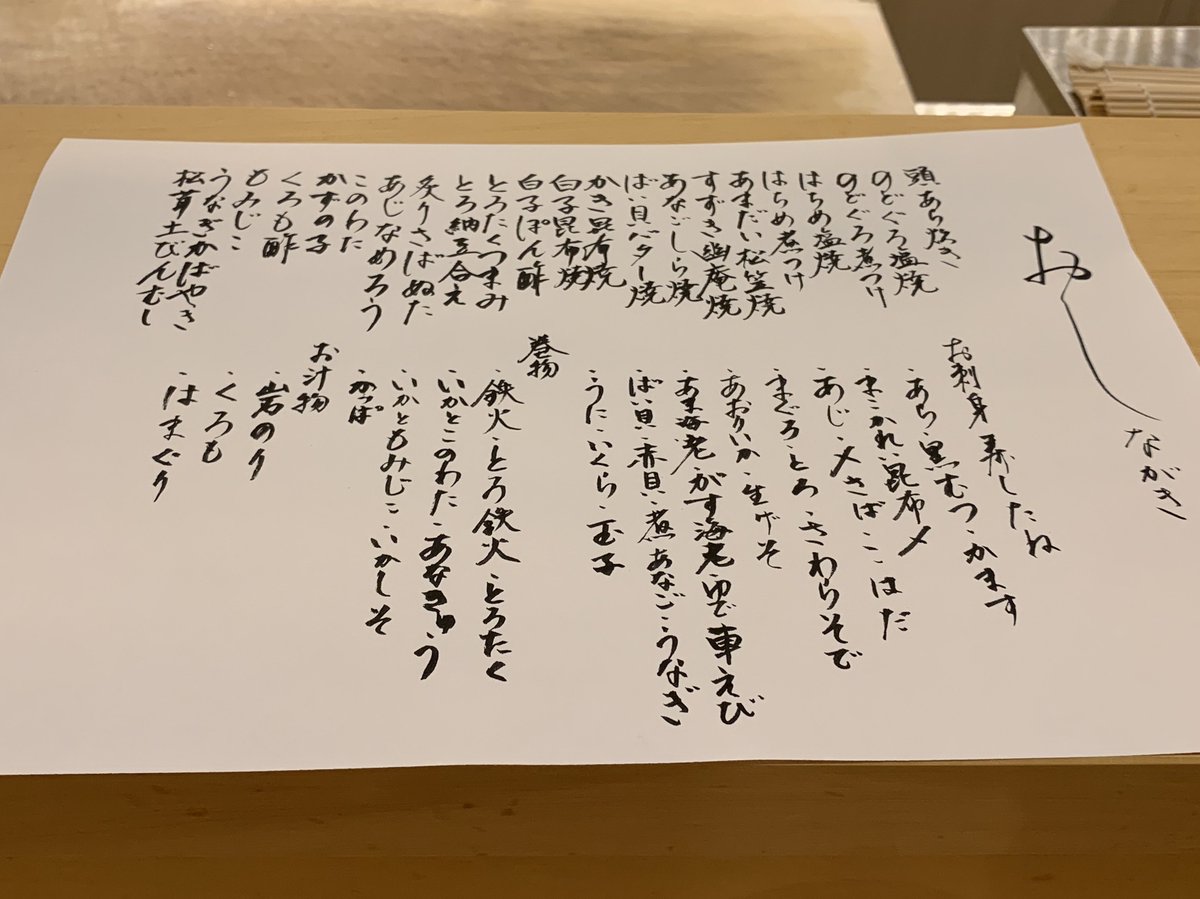 おしながき
頭あら炊き
のどぐろ塩焼
のどぐろ煮つけ
はちめ塩焼
はちめ煮つけ
あまだい松笠焼
すずき幽庵焼
あなごしら焼
ばい貝バター焼
かき昆布焼
白子昆布焼
白子ぽん酢
とろたくつまみ
とろ納豆合え
炙りさばぬた
あじなめろう
このわた
かずの子
くろも酢
もみじこ
うなぎかばやき
松茸土びんむし
お刺身 寿したね
・あら・黒むつ・かます
・まこかれ昆布〆
・あじ・〆さば・こはだ
・まぐろ・とろ・さわらそで
・あおりいか・生げそ
・あま海老・がす海老・ゆで車えび
・ばい貝・赤貝・煮あなご・うなぎ
・うに・いくら・玉子
巻物
・鉄火・とろ鉄火・とろたく
・いかとこのわた・あなきゅう
・いかともみじこ・いかしそ
・かっぱ
お汁物
・岩のり
・くろも
・はまぐり